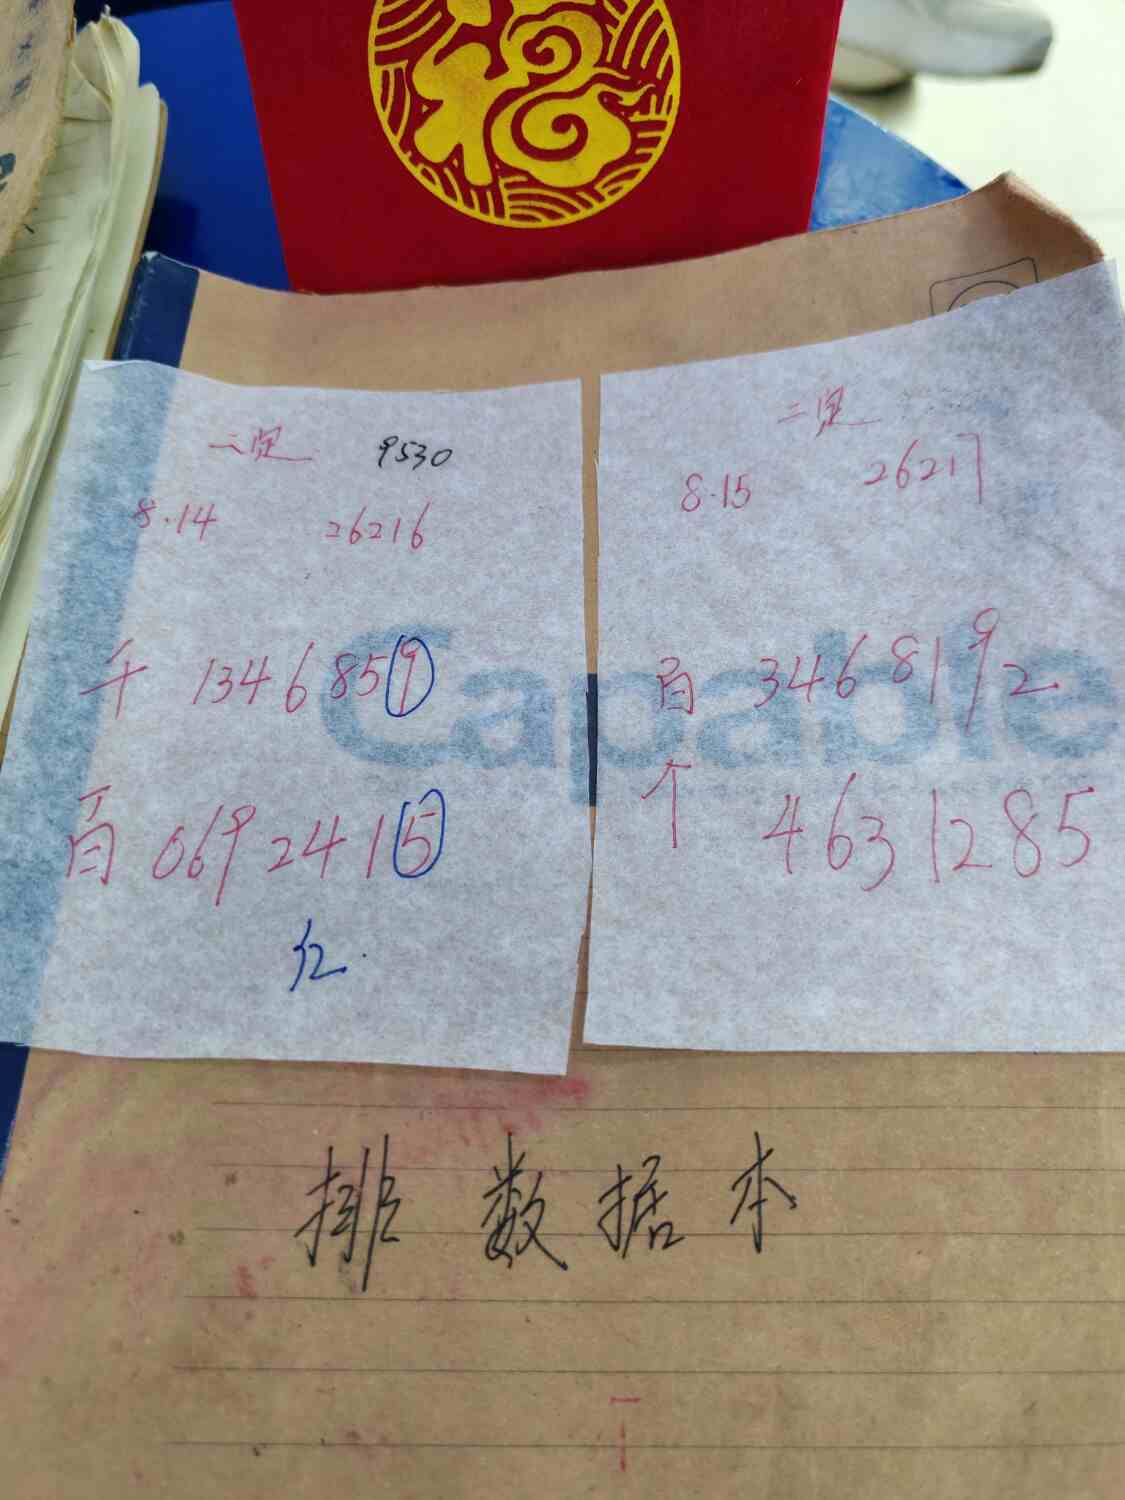 福
二定 9530
8.14 26216
千 1346859
百 0692415
红.
二定
8.15 26217
百 3468192
个 4631285
Capable
排数据本